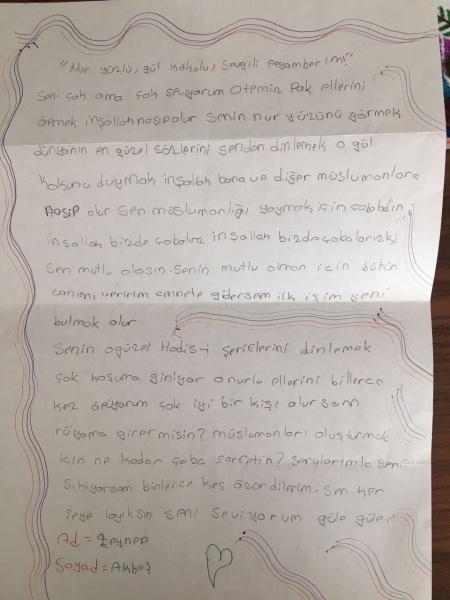 "Nur yüzlü, gül kokulu, sevgili peygamberim!"
Seni çok ama çok seviyorum Otemiz Pak ellerini
öpmek inşallah nasip olur Senin nur yüzünü görmek
dünyanın en güzel sözlerini senden dinlemek o gül
kokunu duymak inşallah bana ve diğer müslümanlara
nasip olur sen müslümanlığı yaymak için çabaladın
inşallah bizde çabalarız inşallah bizde çabalarızki
sen mutlu olasın. Senin mutlu olman için bütün
canımı veririm cennete gidersem ilk işim seni
bulmak olur
Senin ogüzel Hadis-i Şeriflerini dinlemek
çok hoşuma giniyor onurlu ellerini billerce
kez öpüyorum çok iyi bir kişi olursam
rüyama girermisin? müslümanları oluşturmak
için ne kadar çaba sarfettin? Sorularımla seni
Sıkıyorsam binlerce kes özür dilerim. Sen her
şeye layıksın seni seviyorum güle güle.
Ad = Zeynep
Soyad = Akbaş